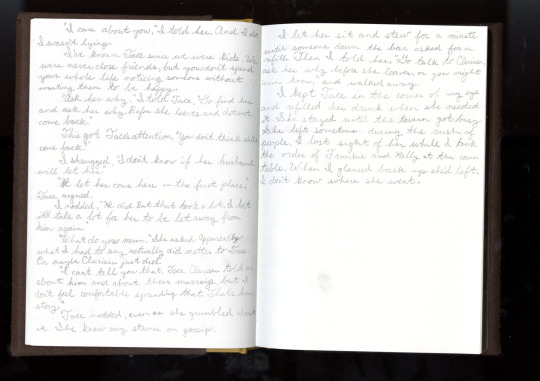 "I care about you," I told her. And I
I wasn't lying.
I've known Tace since we were kids. We
were never close friends, but you don't spend
your whole life noticing someone without
wanting them to be happy.
"Ask her why," I told Tace, "Go find her
and ask her why. Before she leaves and doesn't
come back."
This got Tace's attention, "You don't think she'll
come back?"
I shrugged, "I don't know if her husband
will let her."
"He let her come here in the first place,"
Tace argued.
I nodded, "He did. But that took a lot. I bet
it'll take a lot for her to be let away from
him again."
"What do you mean," She asked. Apparently
what I had to say actually did matter to Tace
Or maybe Clarissa just did.
"I can't tell you that, Tace. Clarissa told me
about him and about their marriage, but I
don't feel comfortable spreading that. That's her
story."
Tace nodded, even as she grumbled about
it. She knew my stance on gossip.
I let her sit and stew for a minute
until someone down the bar asked for a
refill. Then I told her, "Go talk to Clarissa,
ask her why before she leaves, or you might
never know," and walked away.
I kept Tace in the corner of my eye
and refilled her drink when she needed
it. She stayed until the tavern got busy.
She left sometime during the rush of
people. I lost sight of her while I took
the order of Frankie and Holly at the
table. When I glanced back up she'd left,
I don't know where she went.